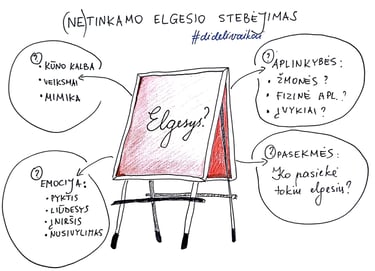 (NE)TINKAMO ELGESIO STEBĖJIMAS
#didelivaikai
?
• KŪNO KALBA
• VEIKSMAI
• MIMIKA
?
APLINKYBĖS:
• ŽMONĖS?
• FIZINĖ APL.?
• ĮVYKIAI?
Elgesys?
?
EMOCIJA:
• PYKTIS
• LIŪDESYS
• ĮNIRŠIS
• NUSIVYLIMAS
?
PASEKMĖS:
Ko pasiekė
tokiu elgesiu?